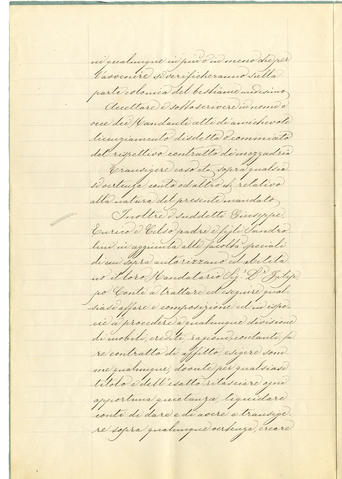 ni qualunque in più o in meno che per
l'avvenire si verificheranno sulla
parte colonica del bestiame medesimo
Accettare e sottoscrivere in nome e
vece dei Mandanti atti di amichevole
licenziamento disdetta o commiato
del rispettivo contratto di mezzadria
Transigere caso da sopra qualsia
si vertenza conto od altro di relativo
alla natura del presente mandato
Inoltre i suddetti Giuseppe
Enrico e Celso padre e figli Sandro
lini in aggiunta alle facoltà speciali
di cui sopra autorizzano ed abilita
no il loro Mandatario Sig. Dr. Filip
po Conti a trattare ed eseguire qual
siasi affare e composizione ed in ispe
cie a procedere a qualunque divisione
di mobili, crediti, ragioni, contante, fa
re contratti di affitto, esigere som
me qualunque, dovute per qualsiasi
titolo e dell'esatto rilasciare ogni
opportuna quietanza, liquidare
conti di dare e di avere e transige
re sopra qualunque vertenza, creare